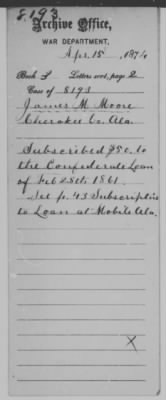 8193
Archive Office,
WAR DEPARTMENT,
Apr. 15, 1874
Book L Letters recd, page 2
Case of 8193
James M. Moore
Cherokee Co. Ala.
Subscribed $50. to
the Confederate Loan
of Feb 28th 1861.
See p. 43 Subscription
to Loan at Mobile Ala.
X